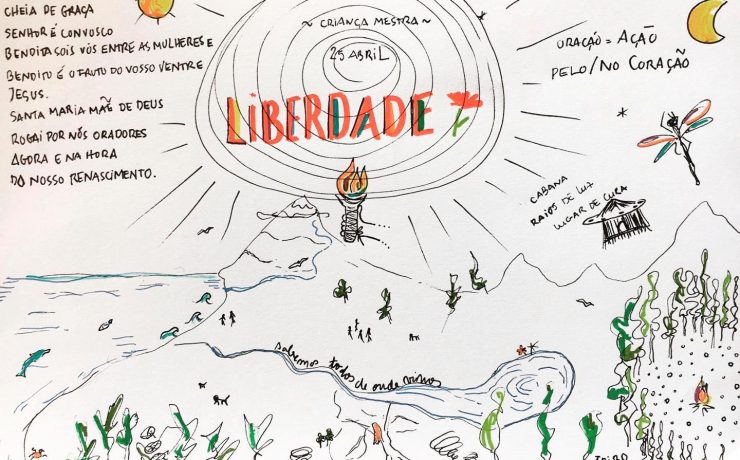 CHEIA DE GRAÇA
SENHOR É CONVOSCO
BENDITA SOIS VÓS ENTRE AS MULHERES E
BENDITO É O FRUTO DO VOSSO VENTRE
JESUS.
SANTA MARIA MÃE DE DEUS
ROGAI POR NÓS ORADORES
AGORA E NA HORA
DO NOSSO RENASCIMENTO.
~ CRIANÇA MESTRA ~
25 ABRIL
LIBERDADE
ORAÇÃO = AÇÃO
PELO/NO CORAÇÃO
CABANA
RAIOS DE LUZ
LUGAR DE CURA
sabemos todos de onde vimos